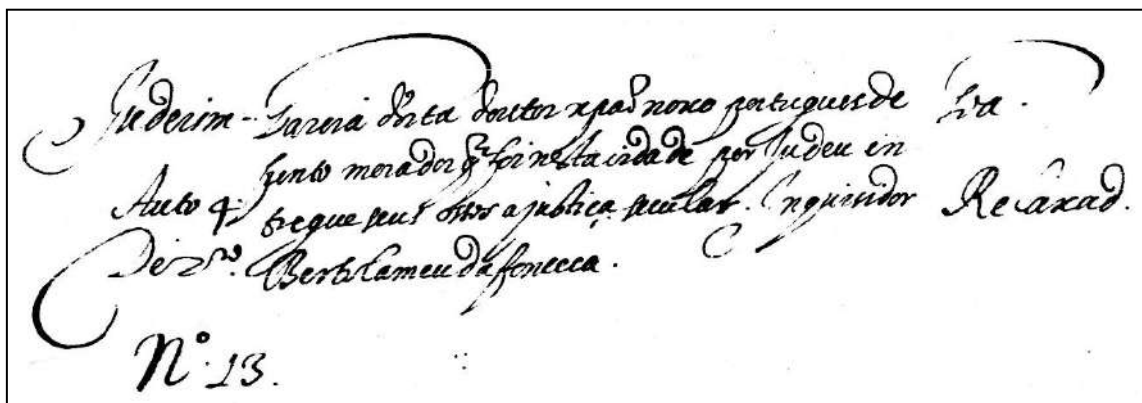 Garcia dorta doutor xpaõ novo portugues de
funto morador q̃ foi nesta cidade por Judeu en
Auto 4 tregue seus ossos a justiça secular. Inquisidor Relaxad.
Dezro. Bertolameu da fonceca.
Nº 13.